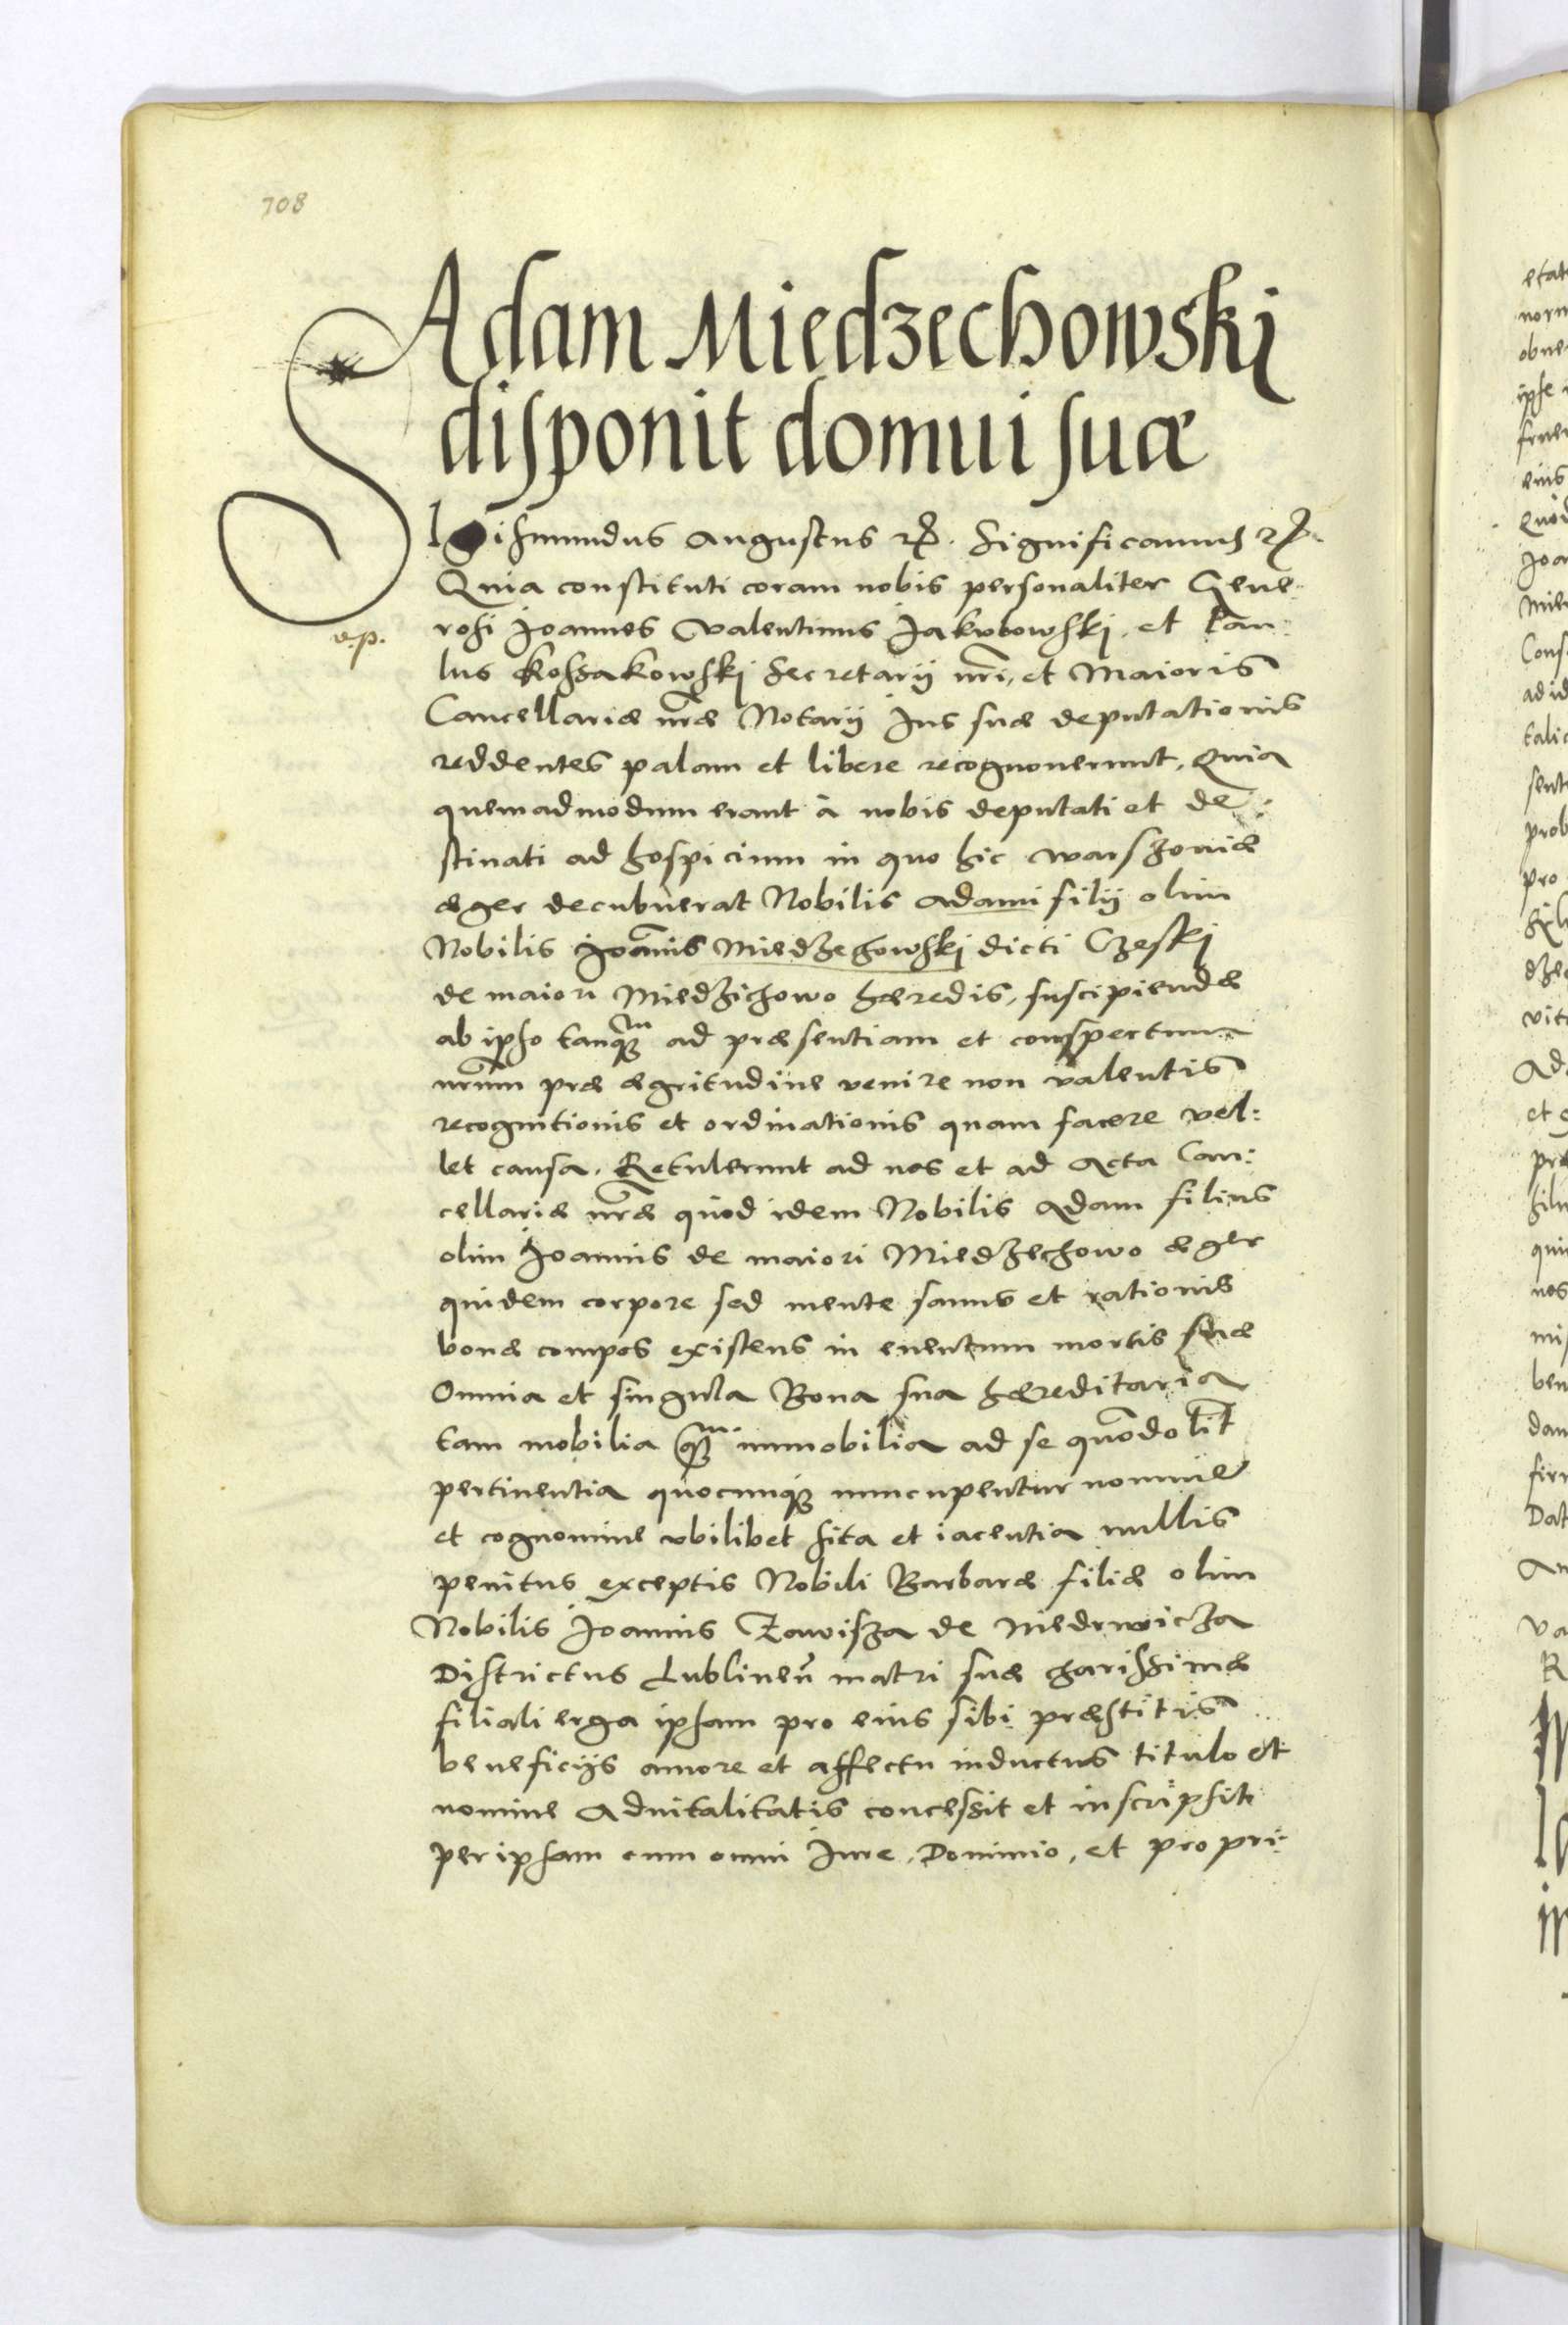 708
Adam Miedzechowski
disponit domui suæ
Sigismundus Augustus etc. Significamus etc.
Quia constituti coram nobis personaliter Gene:
rosi Joannes Valentinus Jakubowski, et Pau:
e.p.
lus Kossakowski Secretarij nri, et Maioris
Cancellariæ nræ Notarij Jus suæ deputationis
reddentes palam et libere recognouerunt, Quia
quemadmodum erant à nobis deputati et de:
stinati ad hospicium in quo hic Warszouiæ
æger decubuerat Nobilis Adami filij olim
Nobilis Joannis Miedzehowski dicti Czeski
de maiori Miedzichowo hæredis, suscipiendæ
ab ipso tanqm ad præsentiam et conspectum
nrum præ ægritudine venire non valentis
recognitionis et ordinationis quam facere vel:
let causa. Retulerunt ad nos et ad Acta Can:
cellariæ nræ quod idem Nobilis Adam filius
olim Joannis de maiori Miedzechowo æger
quidem corpore sed mente sanus et rationis
bonæ compos existens in euentum mortis suæ
Omnia et singula Bona sua hæreditaria
tam mobilia qm immobilia ad se quomodolit
pertinentia quocunque nuncupentur nomine
et cognomine vbilibet sita et iacentia nullis
penitus exceptis Nobili Barbaræ filiæ olim
Nobilis Joannis Zawisza de Niedrwicza
Districtus Lublinen matri suæ charissimæ
filiali erga ipsam pro eius sibi præstitis
beneficijs amore et affectu inductus titulo et
nomine Aduitalitatis concessit et inscripsit
per ipsam cum omni Jure, Dominio, et propri: